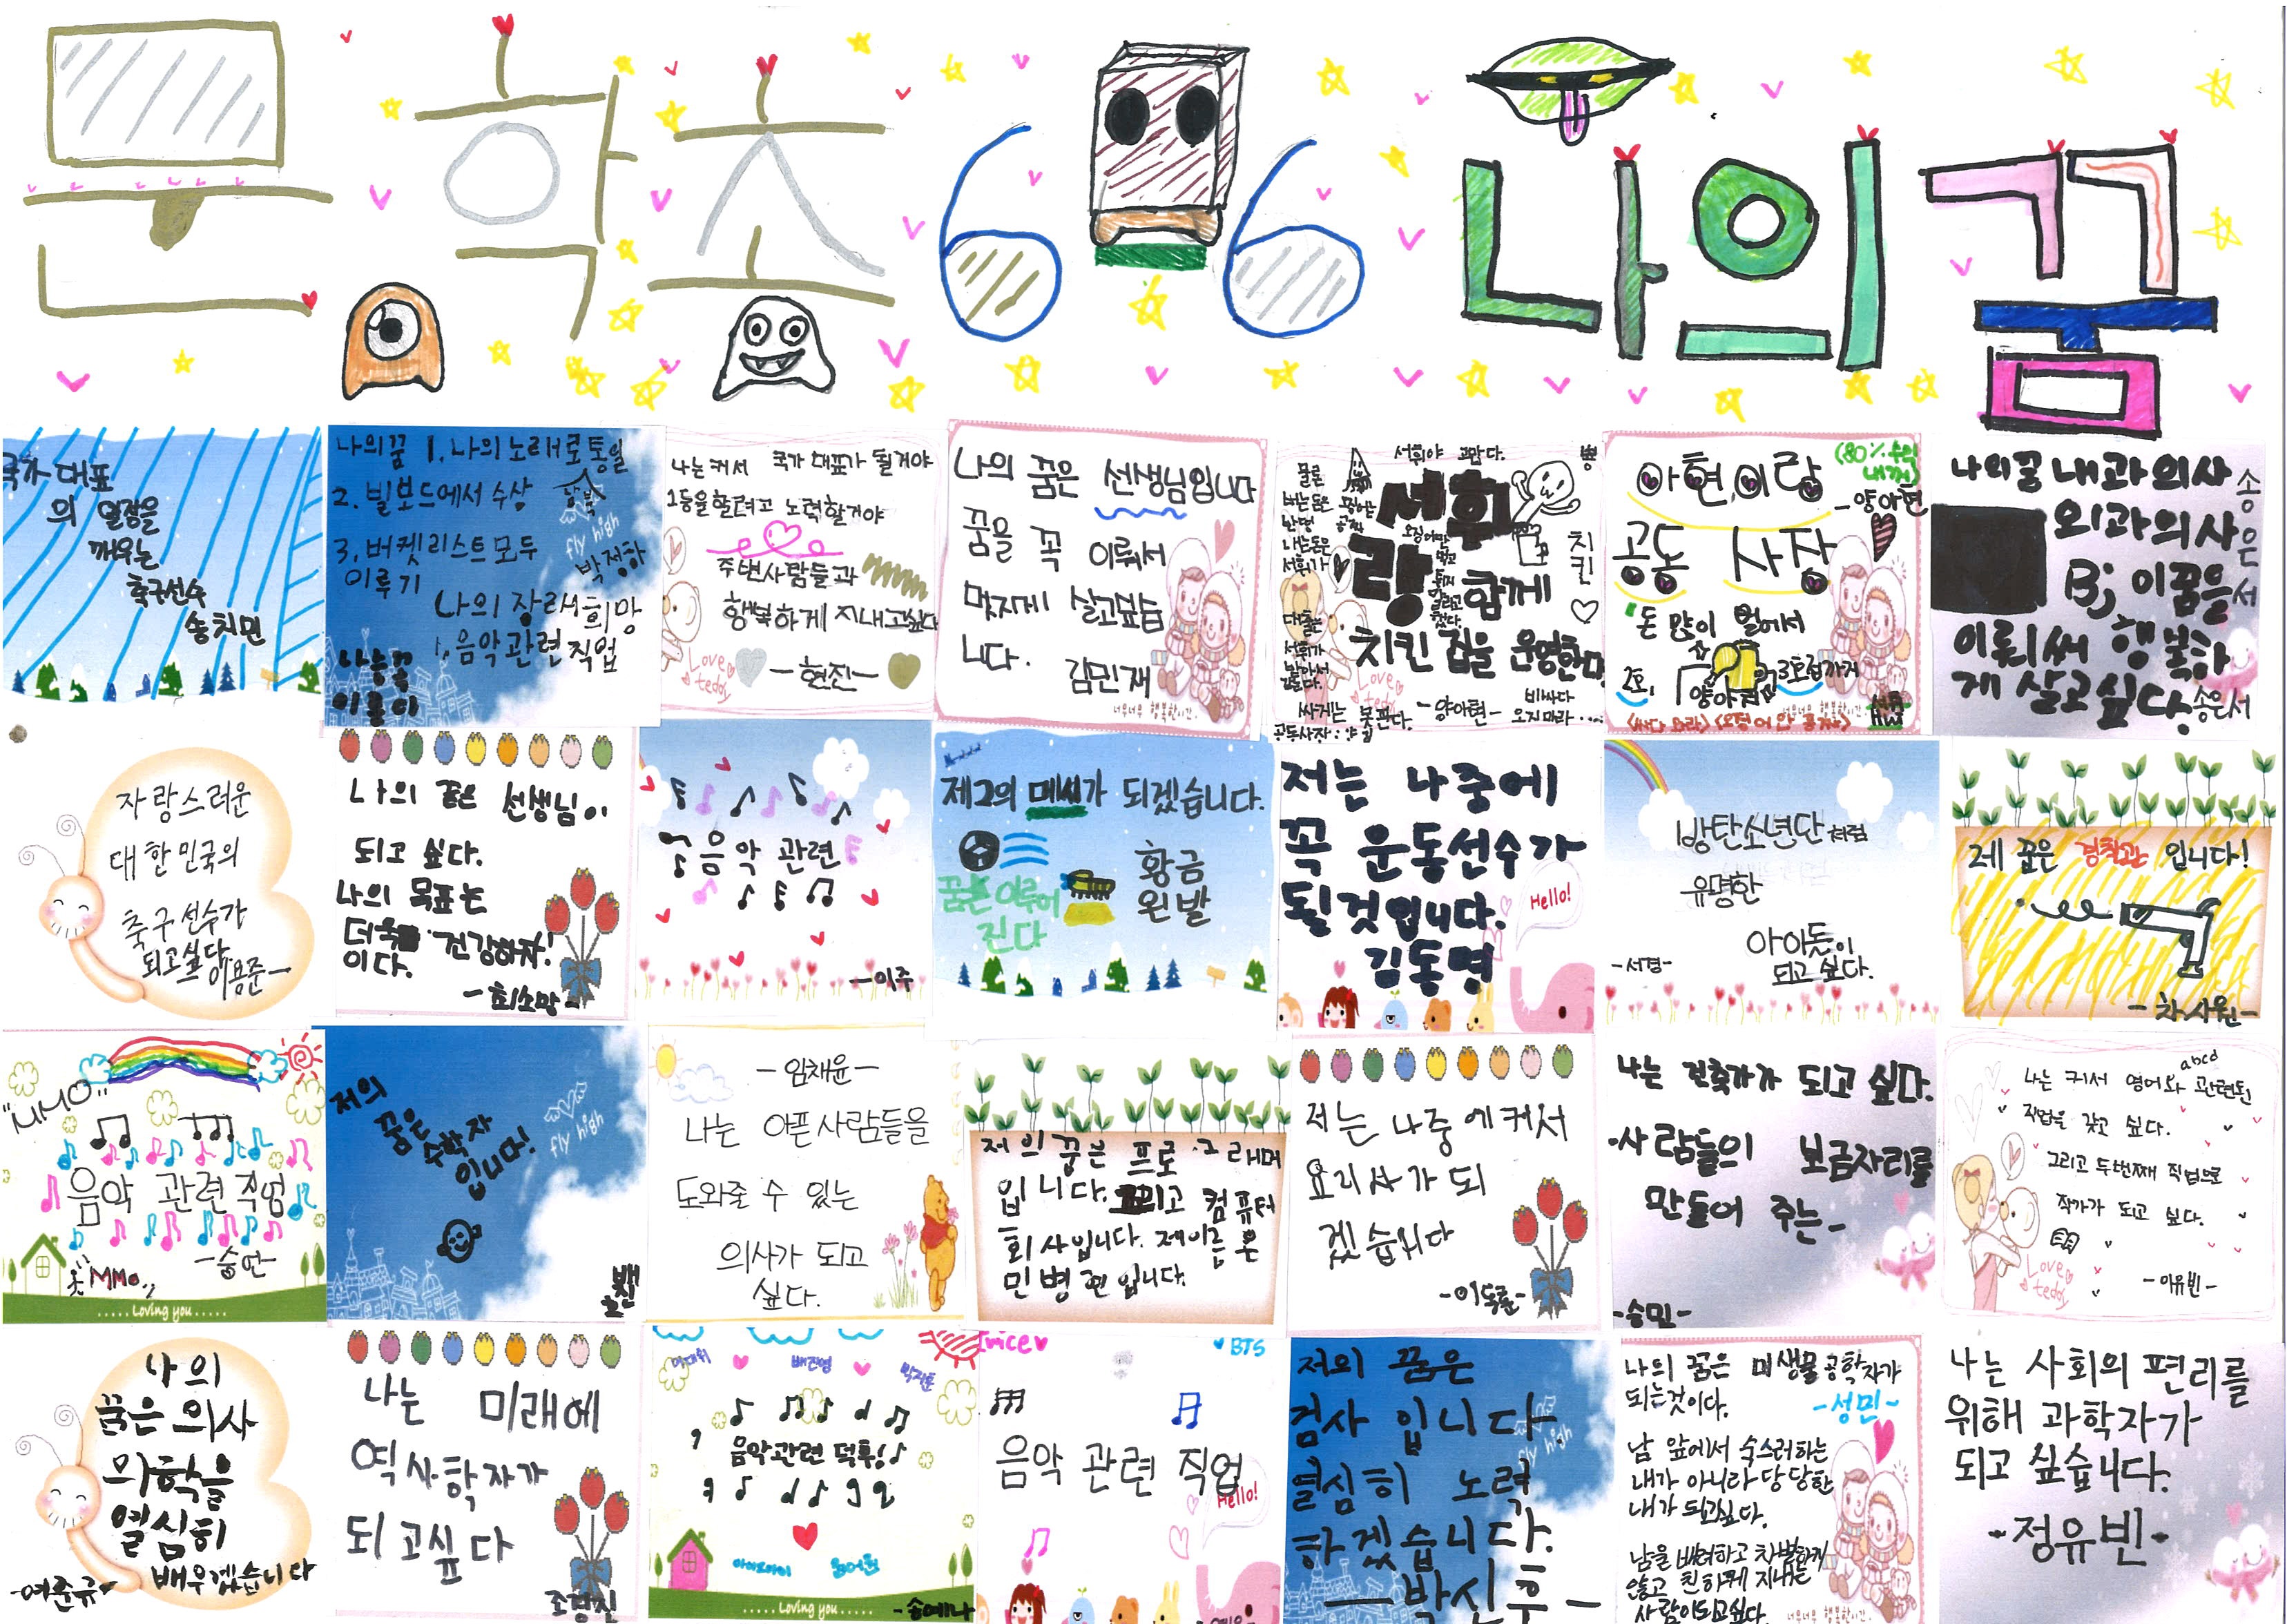 문학초 6-6 나의 꿈
국가 대표
의 열정을
깨우는
축구선수
송치민
나의꿈 1. 나의 노래로 통일
2. 빌보드에서 수상
남북
fly high
3. 버켓리스트 모두
이루기
박정하
나의 장래희망
1. 음악관련 직업
나는 꼭
이룸이
나는 커서 국가 대표가 될거야
1등을 할려고 노력할거야
주변사람들과
행복하게 지내고싶다
Love teddy
-현진-
나의 꿈은 선생님입니다
꿈을 꼭 이뤄서
멋지게 살고싶습
니다.
김민재
너무너무 행복한시간
서휘야 고맙다.
서휘
랑 함께
치킨 집을 운영한다
치킨
Love teddy
싸게는 못판다.
-양아현-
비싸다
오지마라...
아현이랑
(80% 수익
내꺼)
-양아현
공동 사장
돈 많이 벌어서
2호, 3호점까지
나의꿈 내과의사
외과의사
Bj 이꿈을
이뤄써 행복하
게 살고싶다.
송은서
송은서
자랑스러운
대한민국의
축구선수가
되고싶다
이용준-
나의 꿈은 선생님이
되고 싶다.
나의 목표는
더욱 건강하자!
이다.
음악 관련
-이주
제2의 메씨가 되겠습니다.
꿈은 이루어
진다
황금
왼발
저는 나중에
꼭 운동선수가
될것입니다.
Hello!
김동명
방탄소년단처럼
유명한
아이돌이
되고 싶다.
-서경-
제 꿈은 경찰관 입니다!
-차사원-
"MMO"
음악 관련직업
-승연-
MMO
.....Loving you.....
저의
꿈은
수학자
입니다!
fly high
-임채윤-
나는 아픈 사람들을
도와줄 수 있는
의사가 되고
싶다.
저의 꿈은 프로그래머
입니다. 그리고 컴퓨터
회사입니다. 제이름은
민병현입니다.
저는 나중에커서
요리사가 되
겠습니다
나는 건축가가 되고 싶다.
-사람들의 보금자리를
만들어 주는-
-승민-
abcd
나는 커서 영어와 관련된
직업을 갖고 싶다.
그리고 두번째 직업으로
작가가 되고 싶다.
Love teddy
-이유빈-
나의
꿈은 의사
의학을
열심히
배우겠습니다
-여준규-
나는 미래에
역사학자가
되고싶다
이대휘
배진영
박지훈
음악관련 덕후!
.....Loving you.....
-송예나
Twice
BTS
음악 관련 직업
Hello!
저의 꿈은
검사 입니다
fly high
열심히 노력
하겠습니다.
-박신후-
나의 꿈은 미생물 공학자가
되는것이다.
-성민-
남 앞에서 숙스러하는
내가 아니라 당당한
내가 되고싶다.
남을 배려하고 차별하게
않고 친하게 지내는
사람이되고싶다.
너무너무 행복한시간
나는 사회의 편리를
위해 과학자가
되고 싶습니다.
-정유빈-